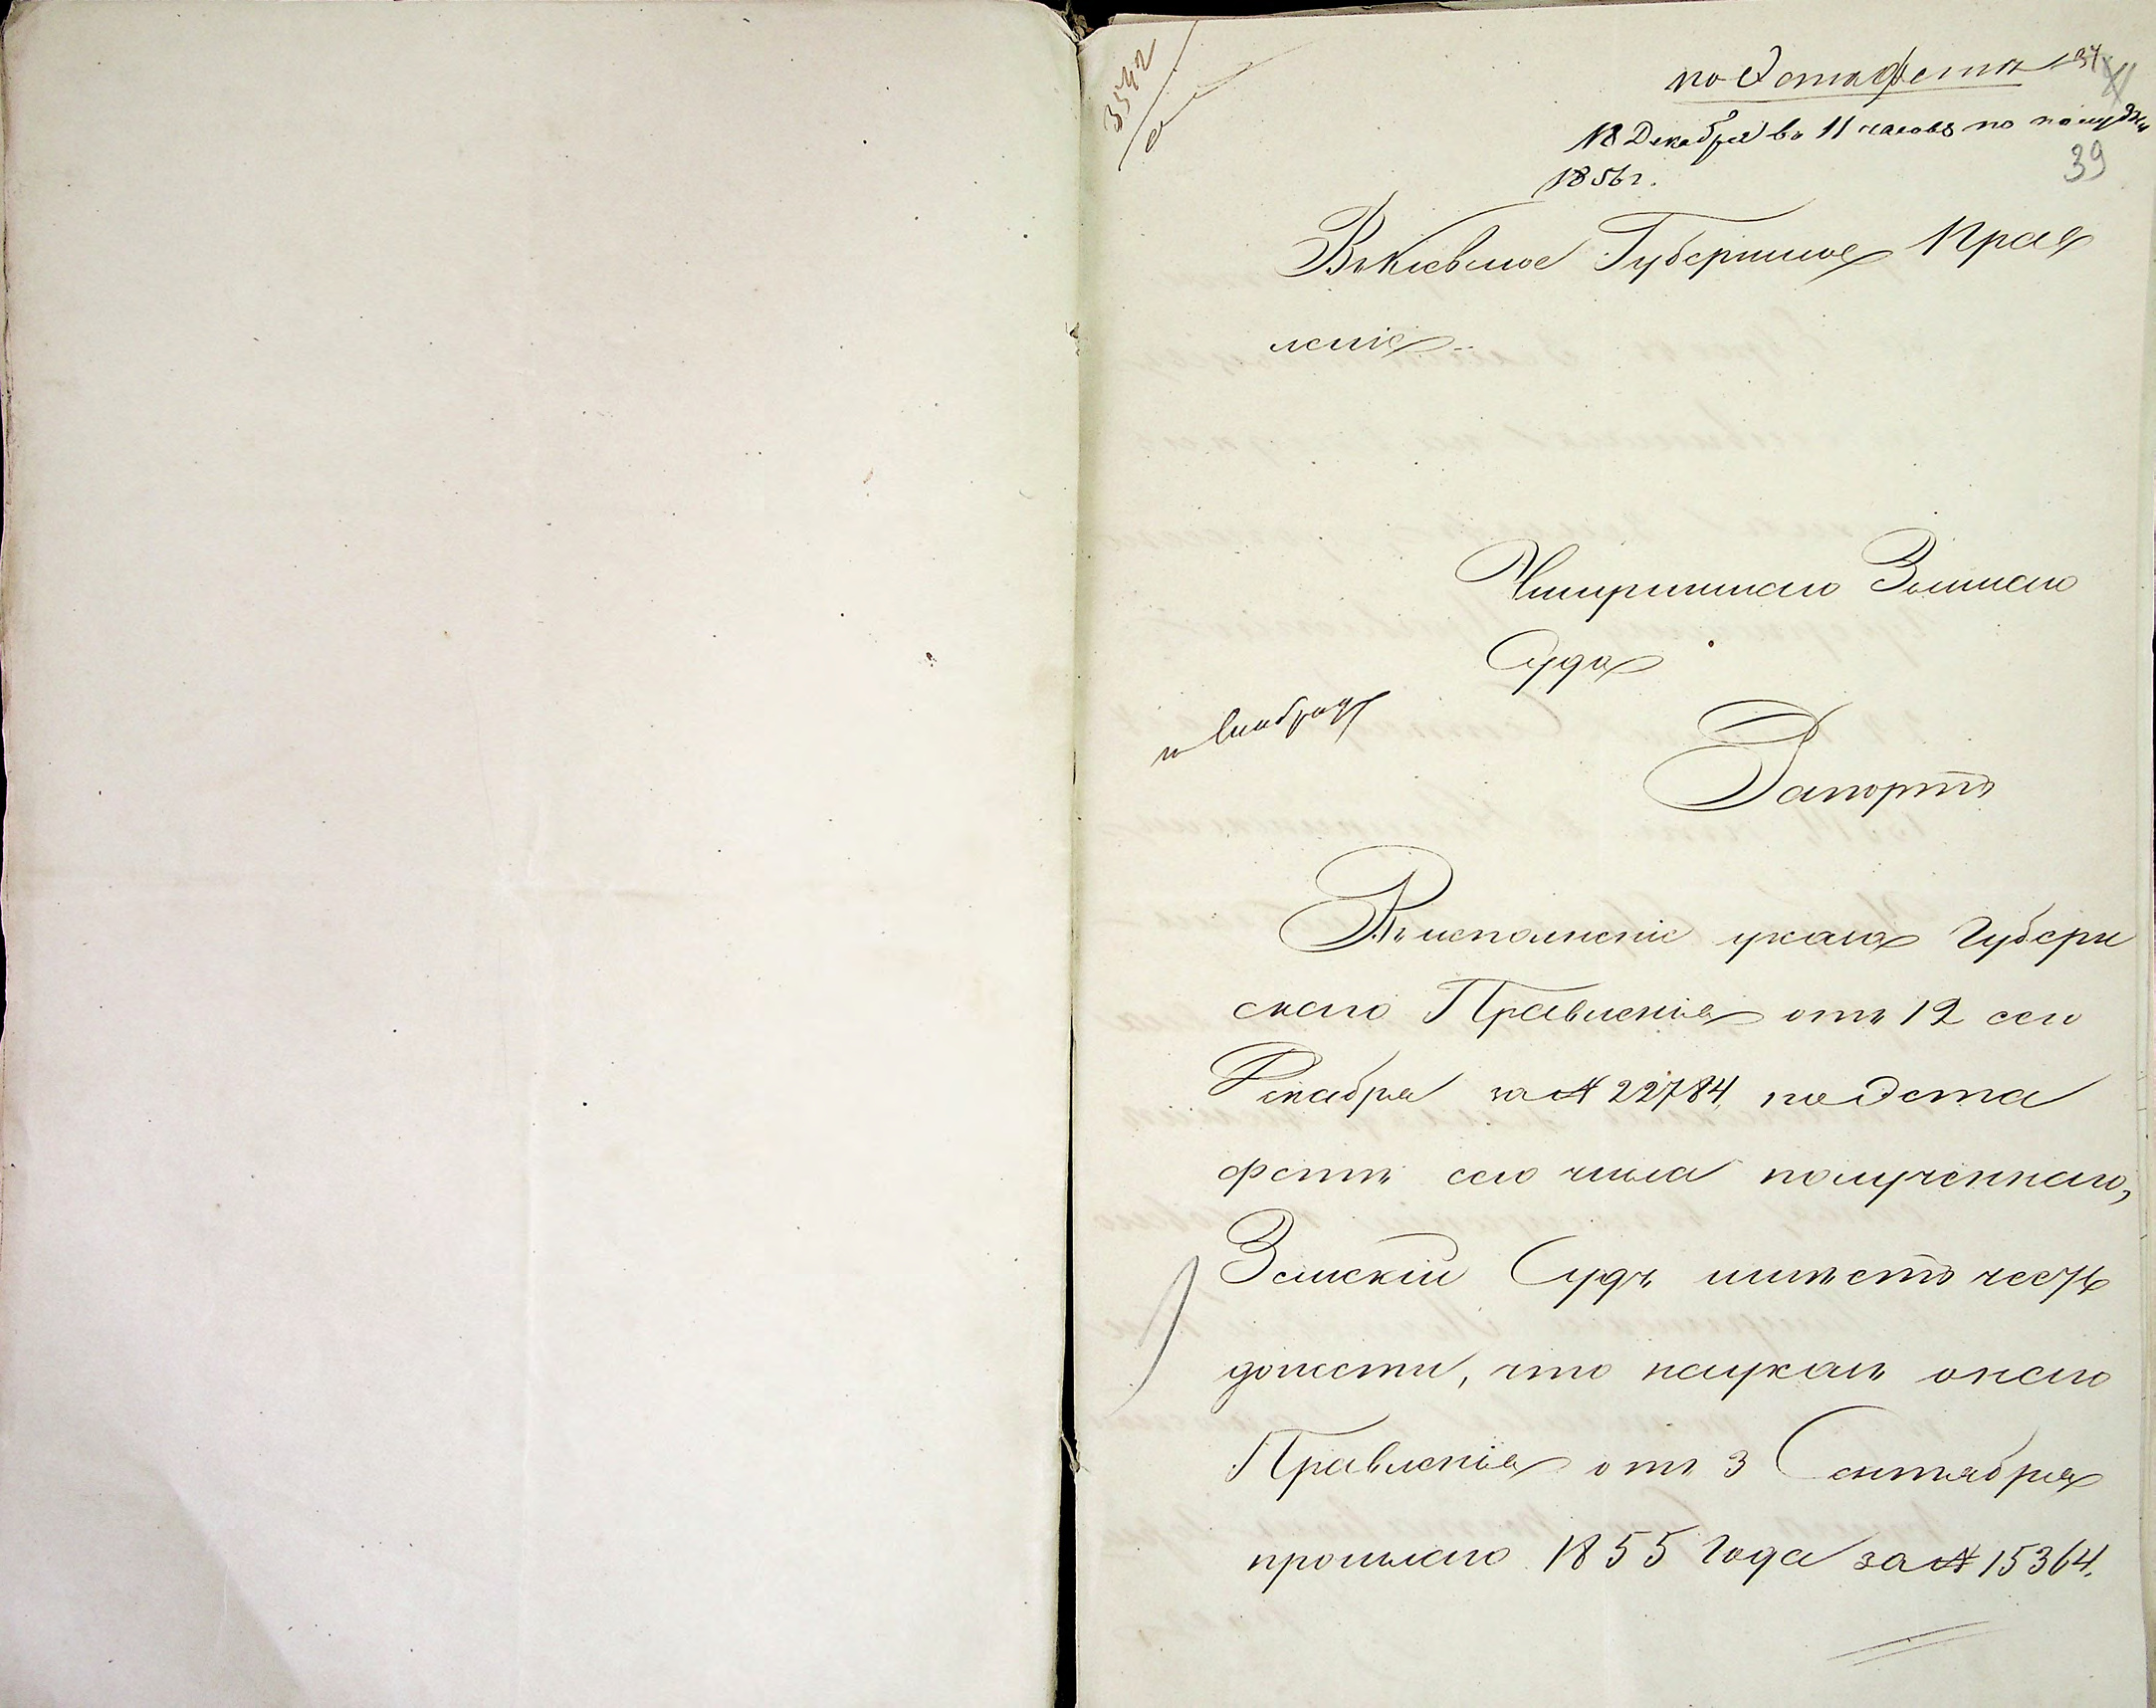 3542
по Эстафетѣ 37
18 Декабря во 11 часовъ по полудни
39
1856 г.
Въ Кіевское Губернское Прав
леніе
Чигиринскаго Земскаго
Суда
Рапортъ
Во исполненіе указа Губерн
скаго Правленія отъ 12 сего
Декабря за № 22784, по Эста
фетѣ сего числа полученнаго,
Земскій Судъ имѣетъ честь
донести, что на указъ онаго
Правленія отъ 3 Сентября
прошлаго 1855 года за № 15364.